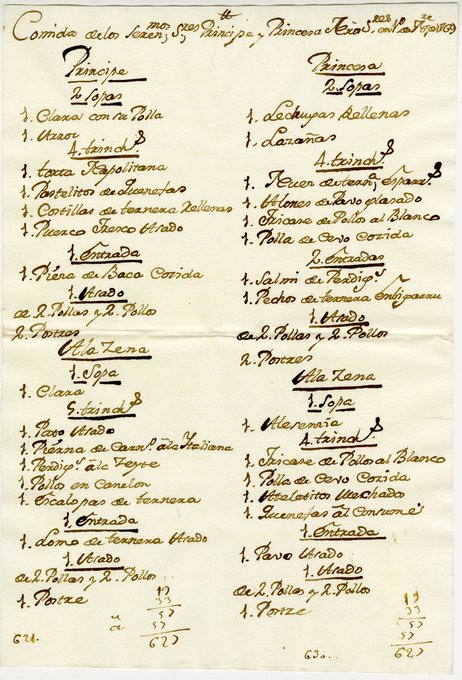 Comida de los Seren.mos S.res Principe y Princesa Nros S.res en
Principe
2. Sopas
1. Clara con su Polla
1. Arroz
4. trinch.s
1. torta Napolitana
1. Pastelitos de quenefas
1. Costillas de ternera Rellenas
1. Puerco fresco Asado
1. Entrada
1. Piéna de Baca Cozida
1. Asado
de 2. Pollas y 2. Pollos
2. Postres
A la Zena
1. Sopa
1. Clara
5. trinch.s
1. Pato Asado
1. Piérna de Carn.o â la Ytaliana
1. Perdig.s â la
1. Pollos en Canelon
1. Escalopas de ternera
1. Entrada
1. Lomo de ternera Asado
1. Asado
de 2. Pollas y 2. Pollos
1. Postre
19
33
57
57
621.
627
Princesa
2. Sopas
1. Lechugas Rellenas
1. Lazañas
4. trinch.s
1. de tern.a
1. Alones de Pavo glasado
1. Fricase de Pollos al Blanco
1. Polla de Cevo Cozida
2. Entradas
1. Salmi de Perdig.s
1. Pechos de ternera
1. Asado
de 2. Pollas y 2. Pollos
2. Postres
A la Zena
1. Sopa
1. Alesenzia
4. trinch.s
1. Fricase de Pollos al Blanco
1. Polla de Cevo Cozida
1. Ateletitos Mechado
1. Quenefas al Consumé
1. Entrada
1. Pavo Asado
1. Asado
de 2. Pollas y 2. Pollos
1. Postre
19
33
57
57
630..
627